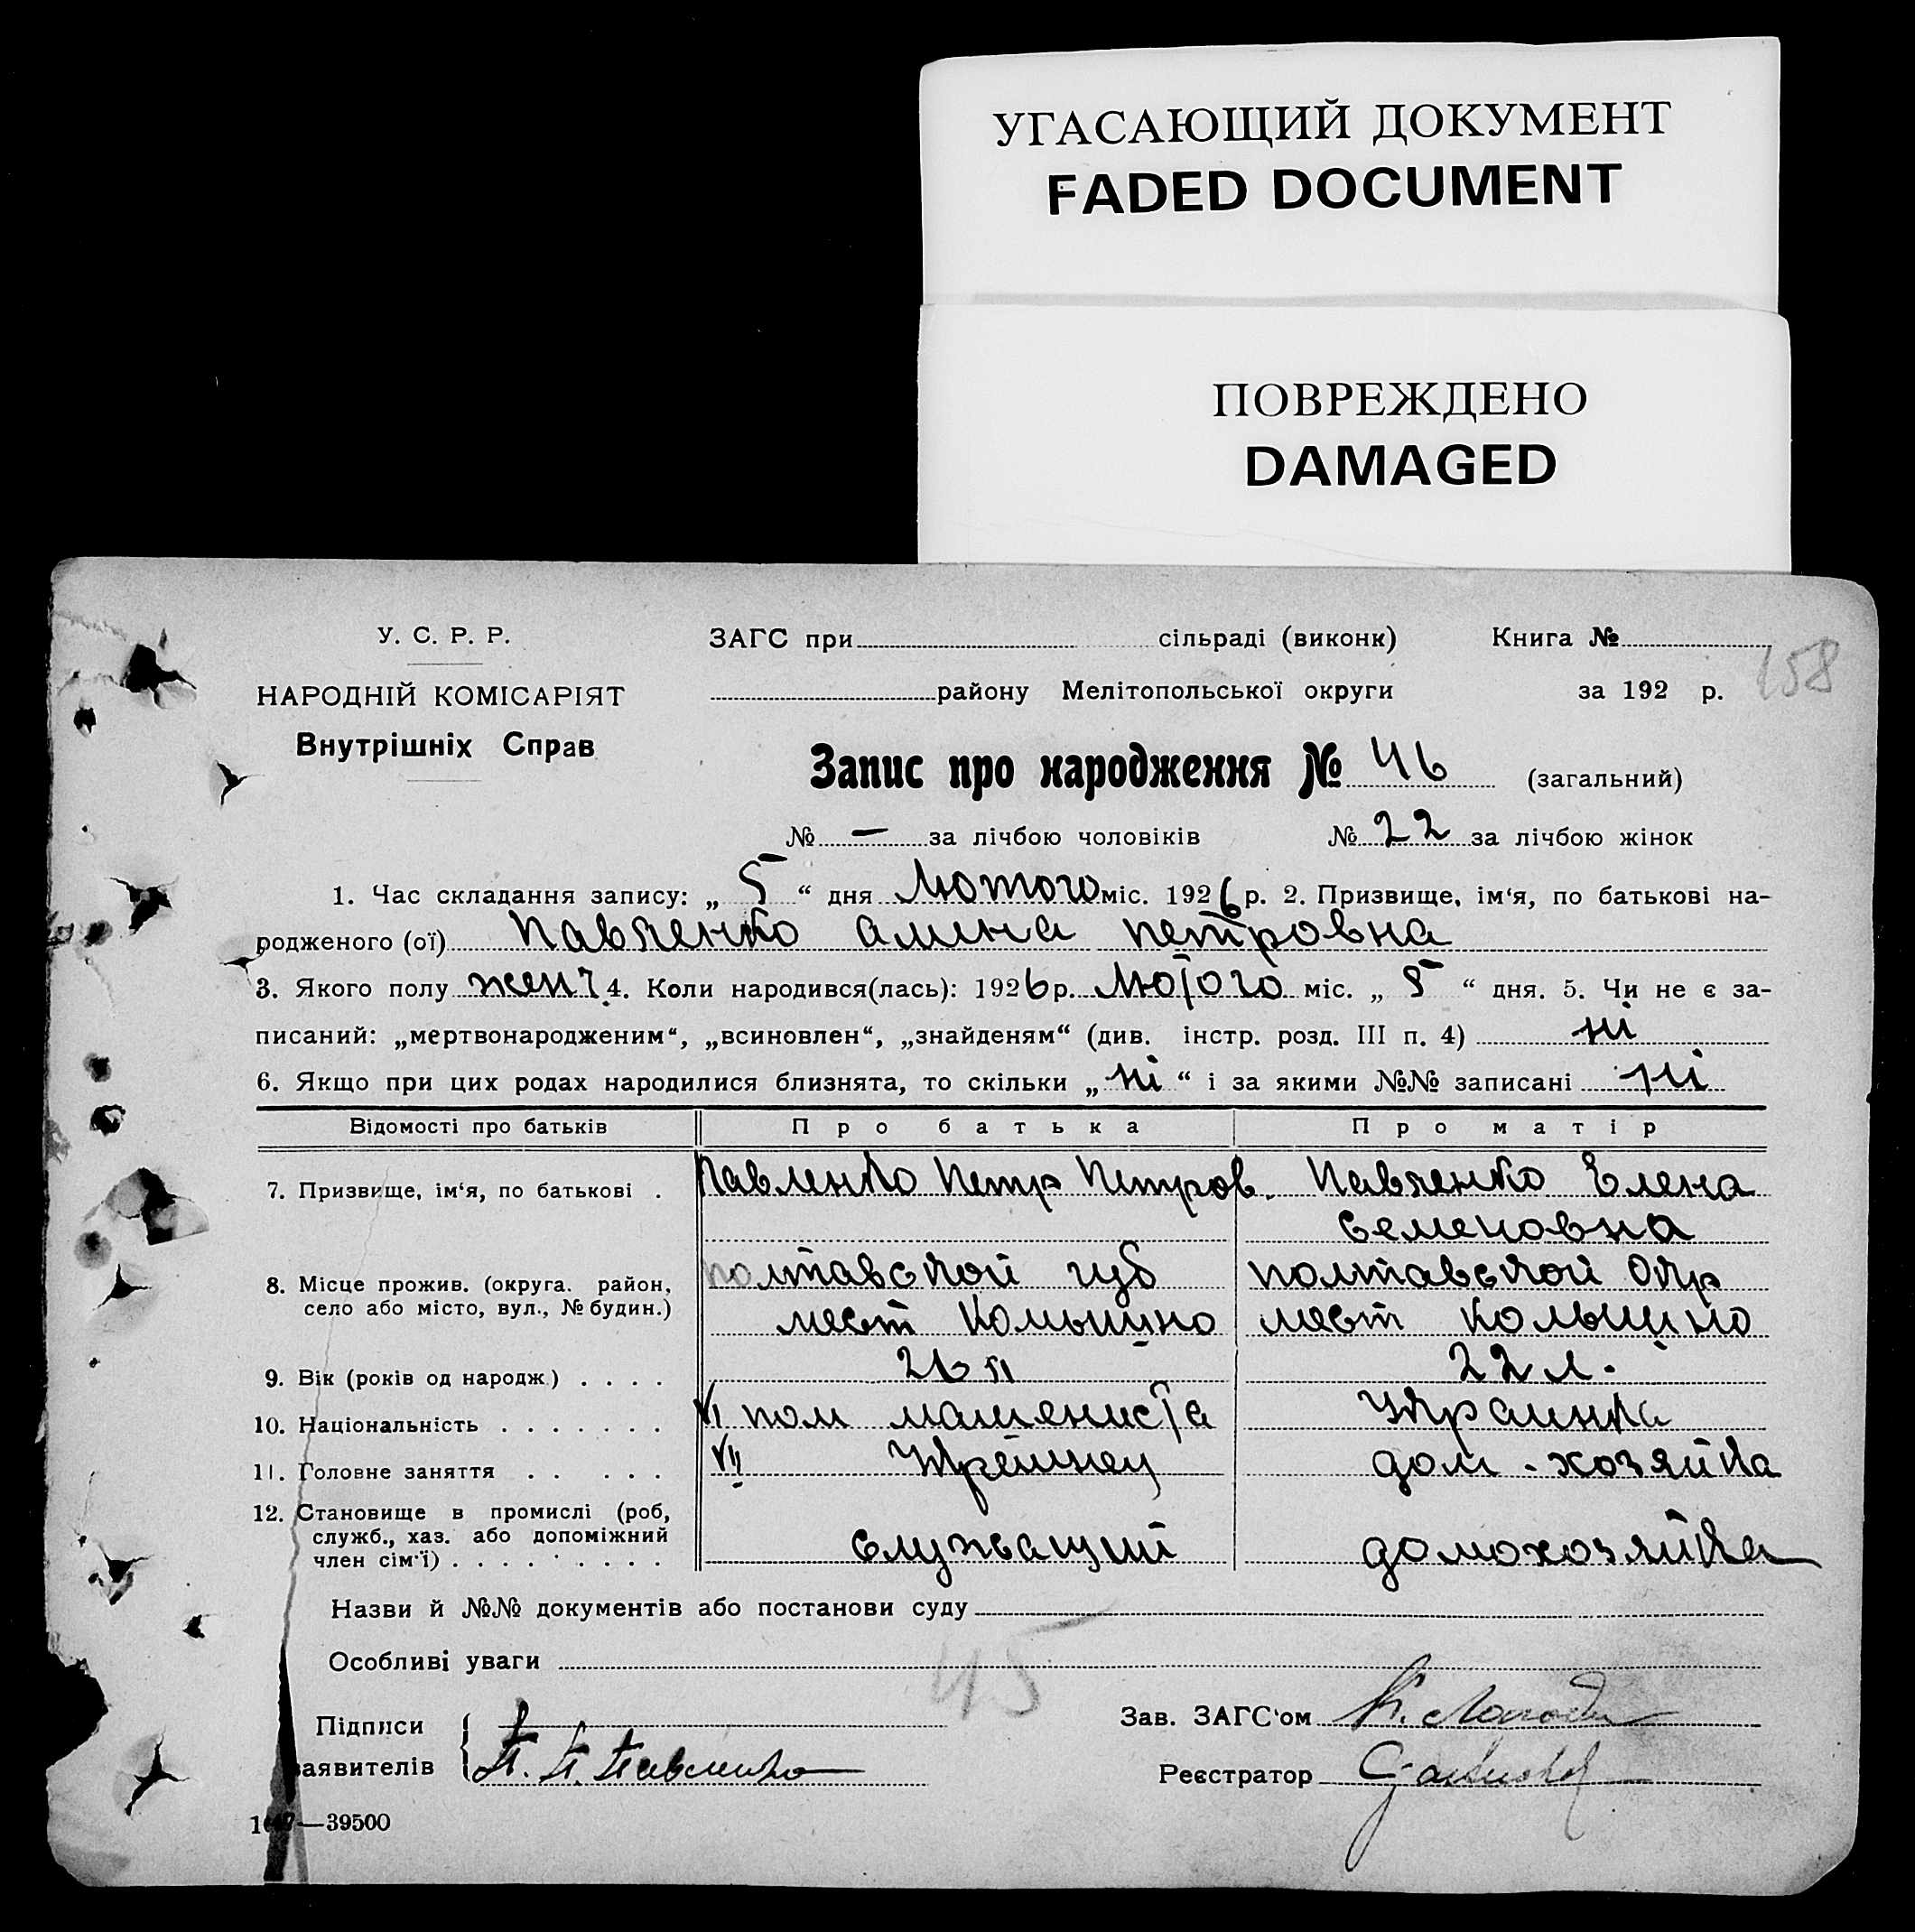 УГАСАЮЩИЙ ДОКУМЕНТ
FADED DOCUMENT
ПОВРЕЖДЕНО
DAMAGED
У. С. Р. Р.
НАРОДНІЙ КОМІСАРІЯТ
Внутрішніх Справ
ЗАГС при сільраді (виконк) Книга №
158
району Мелітопольської округи за 192 р.
Запис про народження № 46 (загальний)
№ — за лічбою чоловіків № 22 за лічбою жінок
1. Час складання запису: „ 5 “ дня Лютого міс. 1926 р. 2. Призвище, ім‘я, по батькові на-
родженого (ої) Павленко Алина Петровна
3. Якого полу жен 4. Коли народився(лась): 1926 р. Лютого міс. „ 5 “ дня. 5. Чи не є за-
писаний: „мертвонародженим“, „всиновлен“, „знайденям“ (див. інстр. розд. III п. 4) ні
6. Якщо при цих родах народилися близнята, то скільки „ ні “ і за якими №№ записані ні
Відомості про батьків Про батька Про матір
7. Призвище, ім‘я, по батькові . Павленко Петр Петров. Павленко Елена
Семеновна
8. Місце прожив. (округа. район, село або місто, вул., № будин.) полтавской губ полтавской Окр
мест мест
9. Вік (років од народж.) . . . . 26 л 22 л.
10. Національність . . . . . . . VI пом машениста Украинка
11. Головне заняття . . . . . VII дом. хозяйка
12. Становище в промислі (роб,
служб., хаз. або допоміжний
член сім‘ї) . . . . . . . . . служащий домохозяйка
Назви й №№ документів або постанови суду
Особливі уваги
45
Підписи
заявителів П. П. Павленко
Зав. ЗАГС‘ом
Реєстратор
—39500